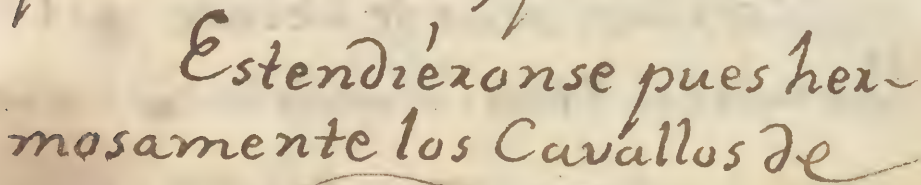 Estendiéronse pues her-
mosamente los Cavallos de